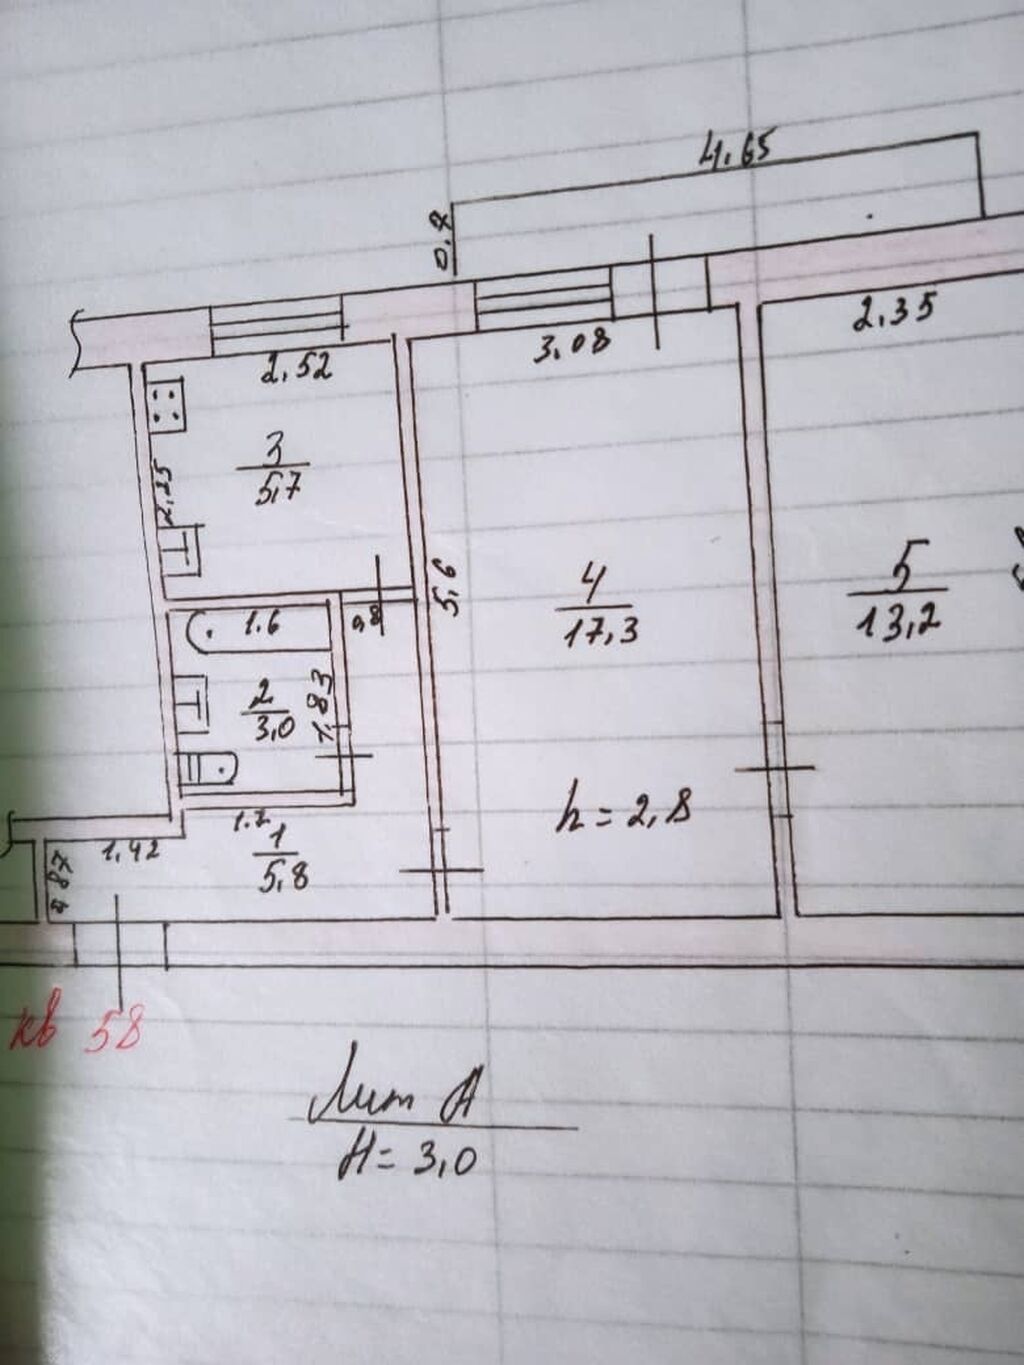 4.65
0.7
2.35
3.08
2,52
3
5,7
2,25
5,6
4
17,3
5
13,2
1.6
0,8
2
3,0
1,83
h = 2,8
1.7
1
5,8
1,42
0,87
кв 58
Лит А
H = 3,0